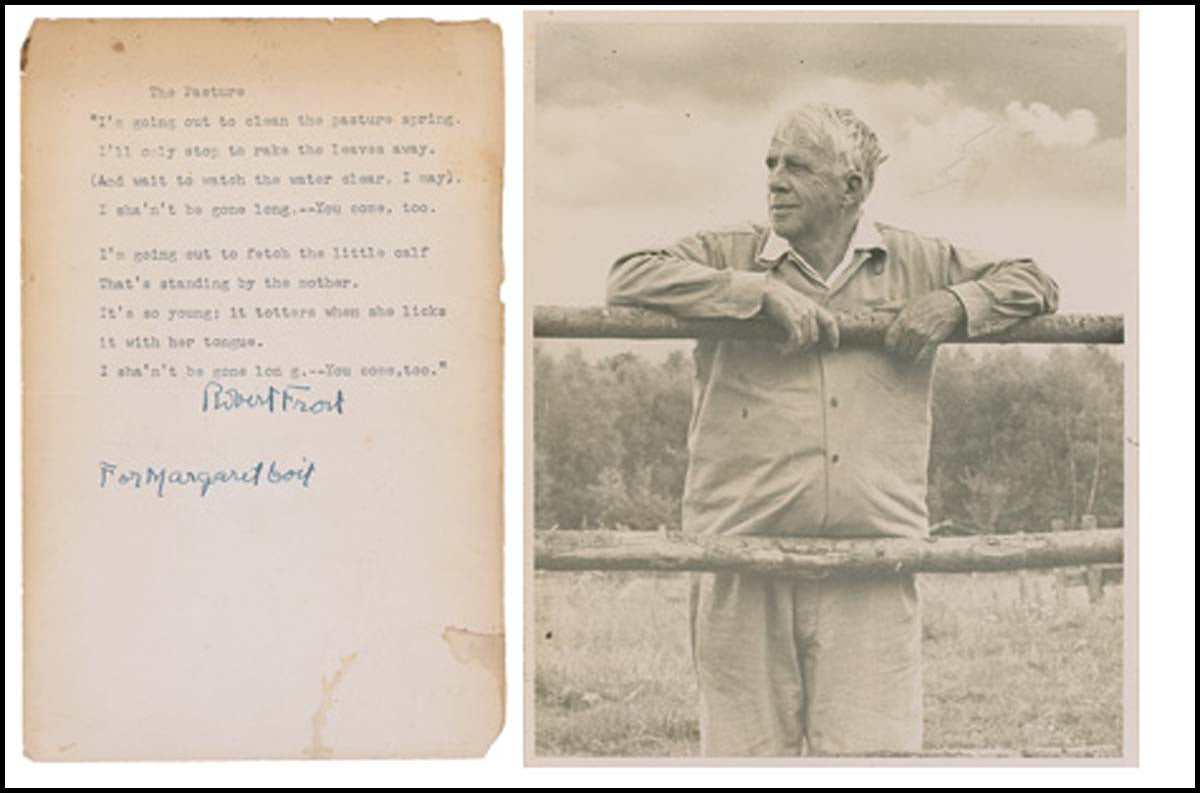 The Pasture
"I'm going out to clean the pasture spring.
I'll only stop to rake the leaves away.
(And wait to watch the water clear, I may).
I sha'n't be gone long.--You come, too.
I'm going out to fetch the little calf
That's standing by the mother.
It's so young; it totters when she licks
it with her tongue.
I sha'n't be gone lon g.--You come,too."
Robert Frost
For Margaret Coit